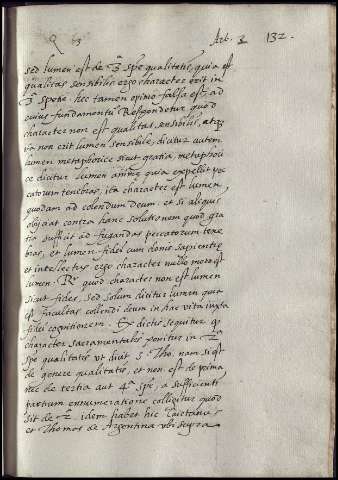 Q 63 Art. 2 132.
sed lumen est de 3ª spē qualitatis, quia est
qualitas sensibilis ergo character erit in
3ª spetie. hec tamen opinio falsa est. ad
cuius fundamentū Respondetur quod
character non est qualitas sensibilis, atq3
ita non erit lumen sensibile, dicitur autem
lumen metaphorice sicut gratia metaphori
ce dicitur lumen animę quia expellit pec
catorum tenebras, ita character est lumen
quoddam ad colendum deum. et si aliquis
obijciat contra hanc solutionem quod gra
tia sufficit ad fugandas peccatorum tene
bras, et lumen fidei cum donis sapientię
et intellectus ergo character nullo modo est
lumen. Rr quod character non est lumen
sicut fides, sed solum dicitur lumen quia
est facultas collendi deum in hac vita iuxta
fidei cognitionem. Ex dictis sequitur q
character sacramentalis ponitur in 2ª
spē qualitatis vt dicit S Tho. nam si est
de genere qualitatis, et non est de prima
nec de tertia aut 4ª spē, a sufficienti
partium ennumeratione colligitur quod
sit de 2ª idem habet hic Caietanus
et Thomas de Argentina vbi supra